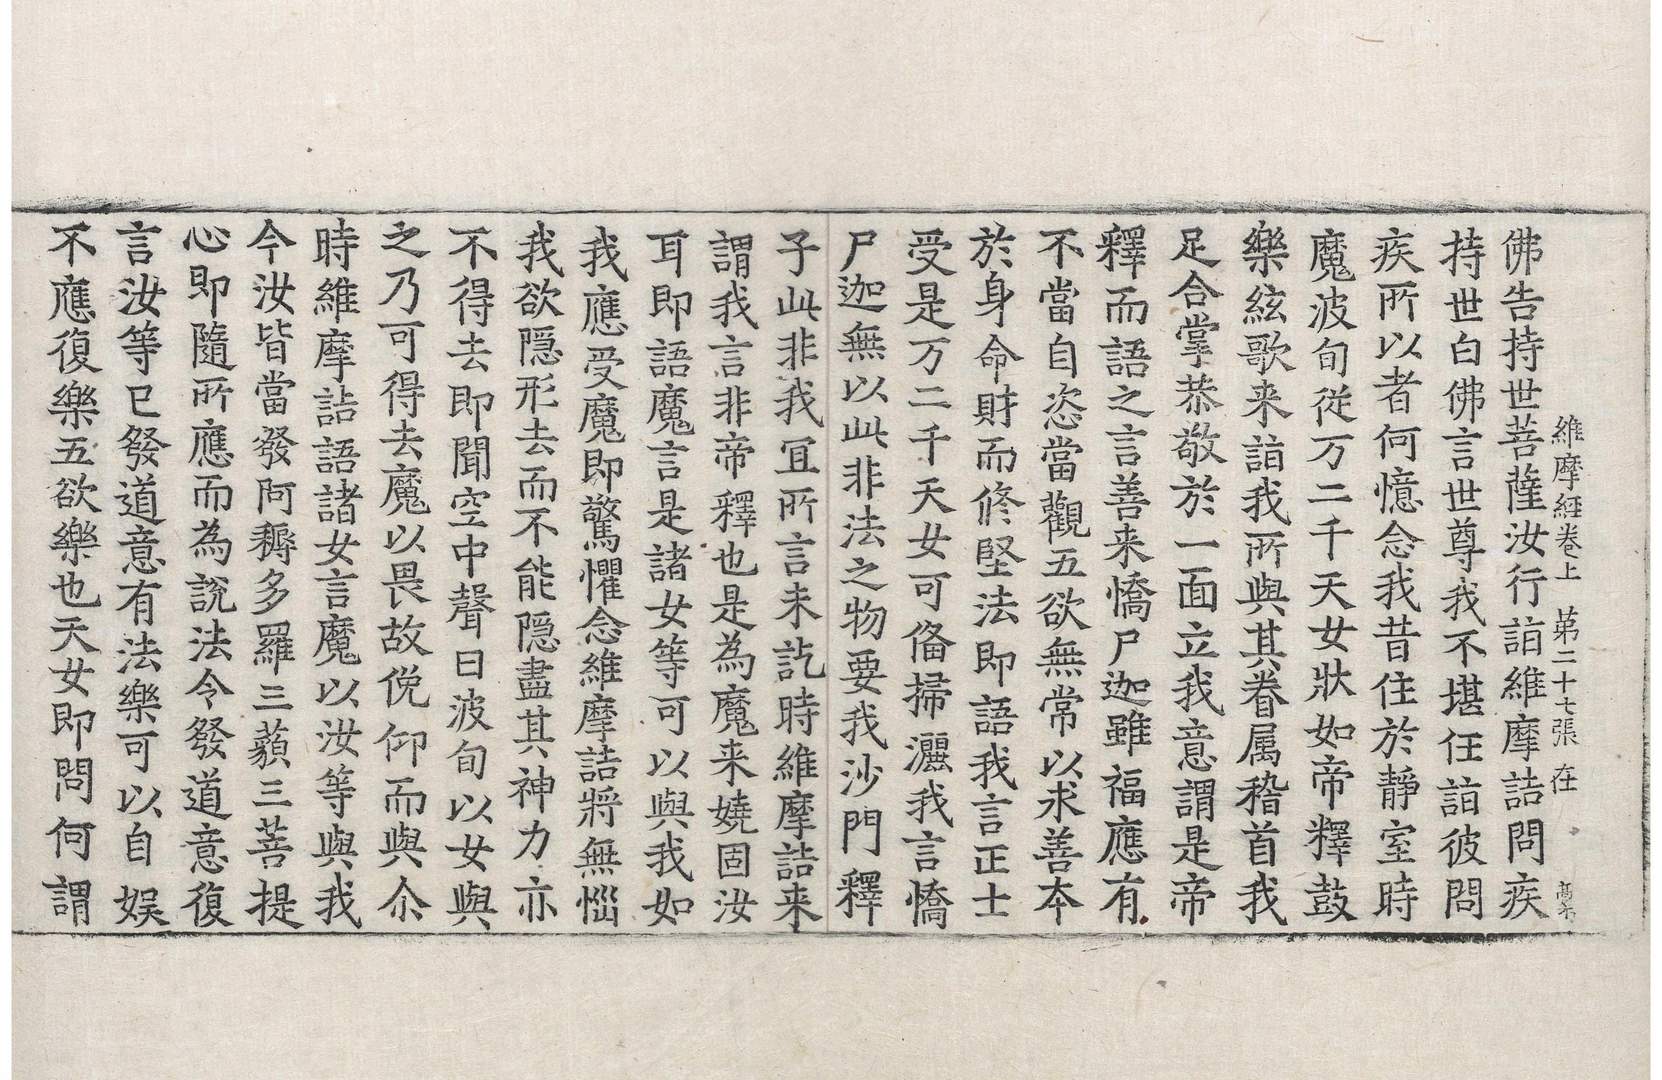 維摩經卷上 苐二十七張 在
佛告持世菩薩汝行詣維摩詰問疾
持世白佛言世尊我不堪任詣彼問
疾所以者何憶念我昔住於靜室時
魔波旬從万二千天女狀如帝釋鼓
樂絃歌来詣我所與其眷属稽首我
足合掌恭敬於一面立我意謂是帝
釋而語之言善来憍尸迦雖福應有
不當自恣當觀五欲無常以求善本
於身命財而修堅法即語我言正士
受是万二千天女可俻掃灑我言憍
尸迦無以此非法之物要我沙門釋
子此非我冝所言未訖時維摩詰来
謂我言非帝釋也是為魔来嬈固汝
耳即語魔言是諸女等可以與我如
我應受魔即驚懼念維摩詰將無惱
我欲隐形去而不能隐盡其神力亦
不得去即聞空中聲曰波旬以女與
之乃可得去魔以畏故俛仰而與尒
時維摩詰語諸女言魔以汝等與我
今汝皆當發阿耨多羅三藐三菩提
心即隨所應而為說法令發道意復
言汝等已發道意有法樂可以自娱
不應復樂五欲樂也天女即問何謂